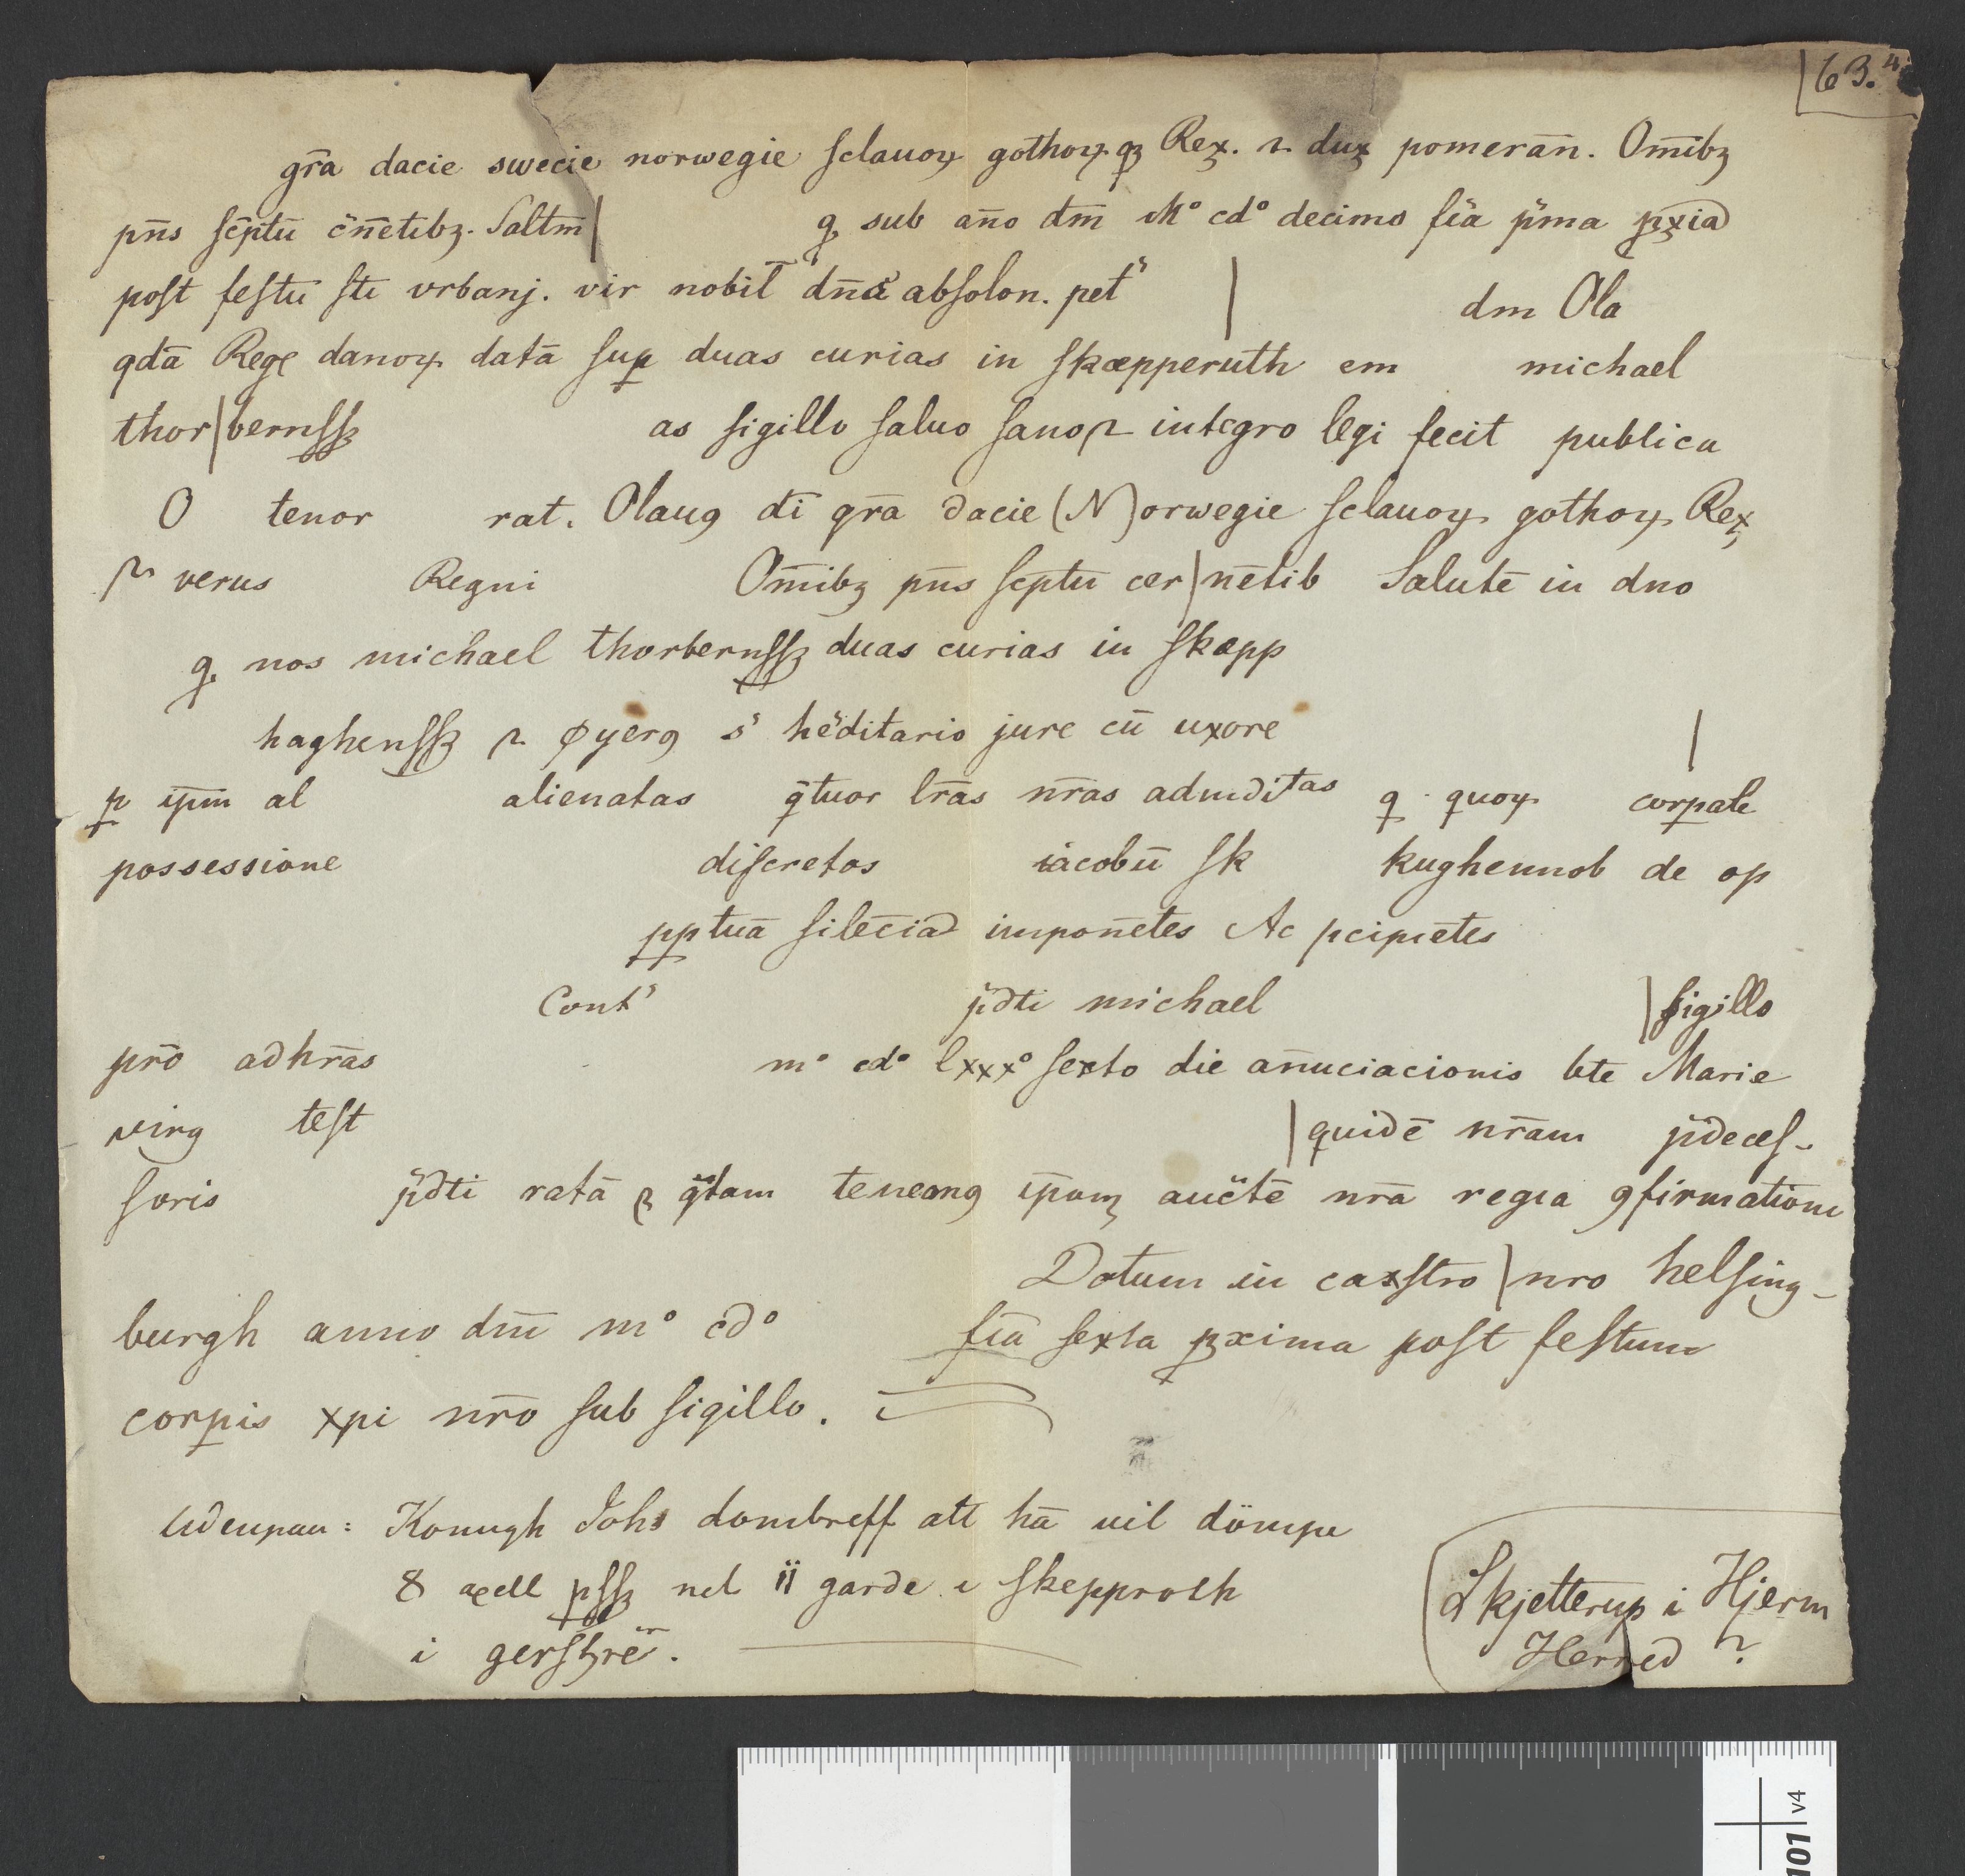 63.4
gr̄a dacie swecie norwegie sclauoꝝ gothoꝝ qꝫ Rex. ⁊ dux pomerān. Om̄ibꝫ
pn̄s sc̄ptū c̄n̄etibꝫ. Saltm̄| ꝙ sub ān̄o dm̄ M° cd° decimo fīa p̄ma ꝓxīa
post festū sti vrbanj. vir nobil̄ dn̄s absolon. pet᷑ | dm Ola
qdā Rege danoꝝ datā suꝑ duas curias in skæpperuth em michael
thor|bernssꝫ as sigillo saluo sano ⁊ integro legi fecit publica
O tenor rat. Olauꝯ dī gr̄a dacie (N)orwegie sclauoꝝ gothoꝝ Rex
⁊ verus Regni Om̄ibꝫ pn̄s sc̄ptū cer|nētib Salutē in dno
ꝙ nos michael thorbernssꝫ duas curias in skæpp
haghenssꝫ ⁊ øyerꝯ s᷑ he᷑ditario jure cū uxore |
ꝑ ip̄m al alienatas q̄tuor lr̄as nr̄as adinditas ꝙ quoꝝ corꝑale
possessione discretos iacobū sk kughennob de op
ꝑꝑtuā silēcia imponētes Ac p̄cipiētes
Cont᷑ p̄dti michael |sigillo
pr̄o adhr̄as m° cd° lxxx° sexto die an̄uciacionis bte Marie
virg test |quidē nr̄am p̄deces-
soris p̄dti ratā ⁊ g̃tam teneamꝯ ip̄am auc̄tē nr̄a regia ꝯfirmatione
Datum in caxstro |nro helsing-
burgh anno dm̄ m° cd° fīa sexta ꝓxima post festum
corꝑis xpi nr̄o sub sigillo.
Udenpaa: Konugh Johs dombreff att hā uil dömpe
8 axell pssꝫ nel ii garde i skepproth
i gershre᷑.
Skjetterup i Hjerm
Herred ?